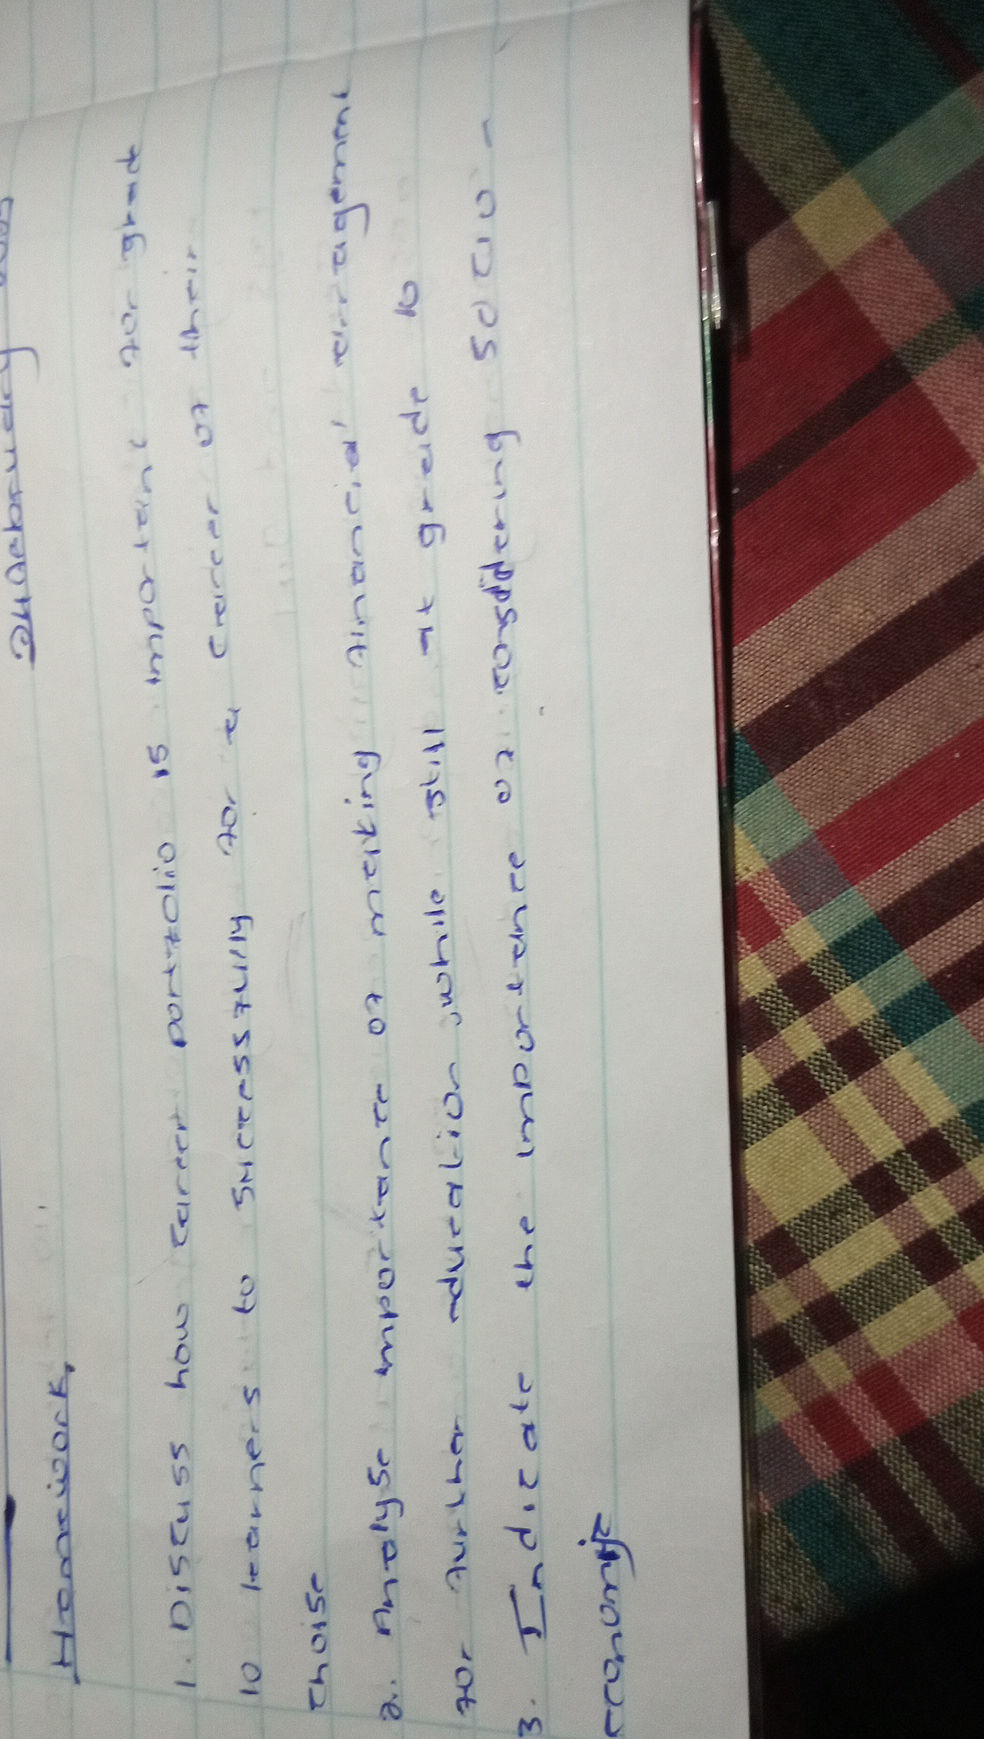 24 February
Homework
1. Discuss how career portfolio is important for grade
10 learners to successfully for a career of their
choise
2. Analyse importance of making financial arragement
for further education, while still at grade 10
3. Indicate the importance of considering socio-
economic